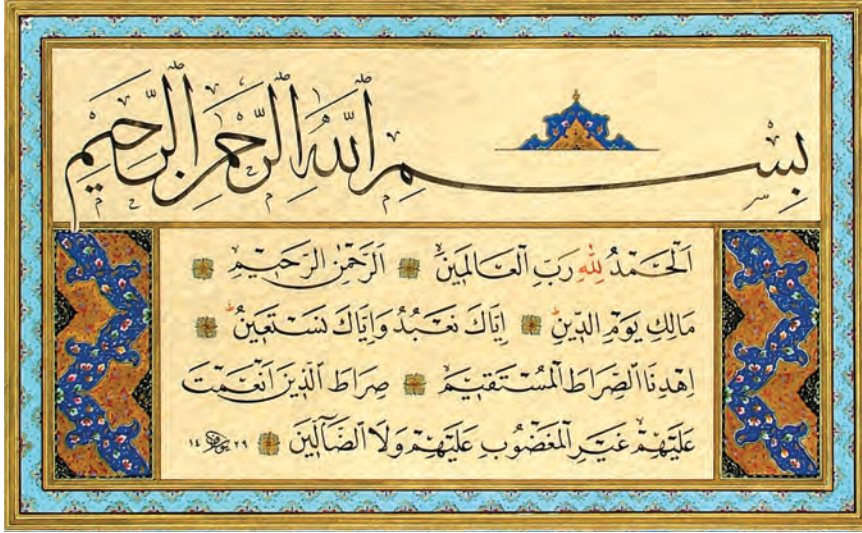 بِسْمِ اللّٰهِ الرَّحْمٰنِ الرَّحِيمِ
اَلْحَمْدُ لِلّٰهِ رَبِّ الْعَالَمِينَ ۞ اَلرَّحْمٰنِ الرَّحِيمِ ۞
مَالِكِ يَوْمِ الدِّينِ ۞ اِيَّاكَ نَعْبُدُ وَاِيَّاكَ نَسْتَعِينُ ۞
اِهْدِنَا الصِّرَاطَ الْمُسْتَقِيمَ ۞ صِرَاطَ الَّذِينَ اَنْعَمْتَ
عَلَيْهِمْ غَيْرِ الْمَغْضُوبِ عَلَيْهِمْ وَلَا الضَّٓالِّينَ ۞ ١٤ ٢٩